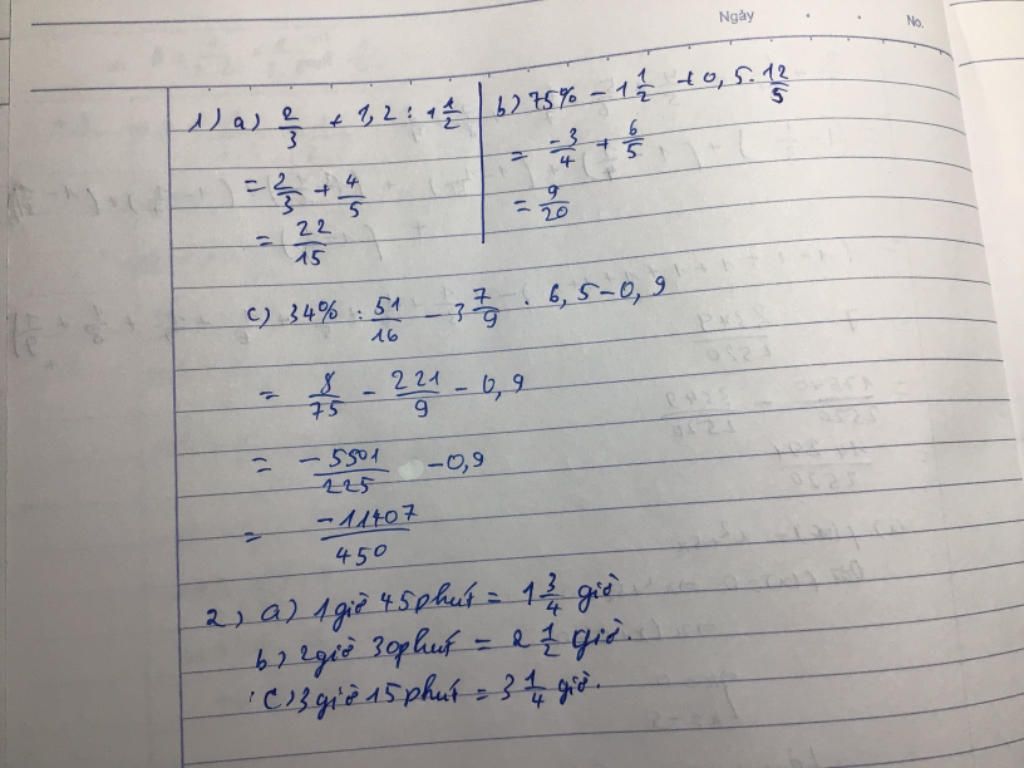 Ngày . . No.
1) a) 2/3 + 1,2 : 1 1/2
= 2/3 + 4/5
= 22/15
b) 75% - 1 1/2 + 0,5 . 12/5
= -3/4 + 6/5
= 9/20
c) 34% : 51/16 - 3 7/9 . 6,5 - 0,9
= 8/75 - 221/9 - 0,9
= -5501/225 - 0,9
= -11407/450
2) a) 1 giờ 45 phút = 1 3/4 giờ
b) 2 giờ 30 phút = 2 1/2 giờ.
c) 3 giờ 15 phút = 3 1/4 giờ.